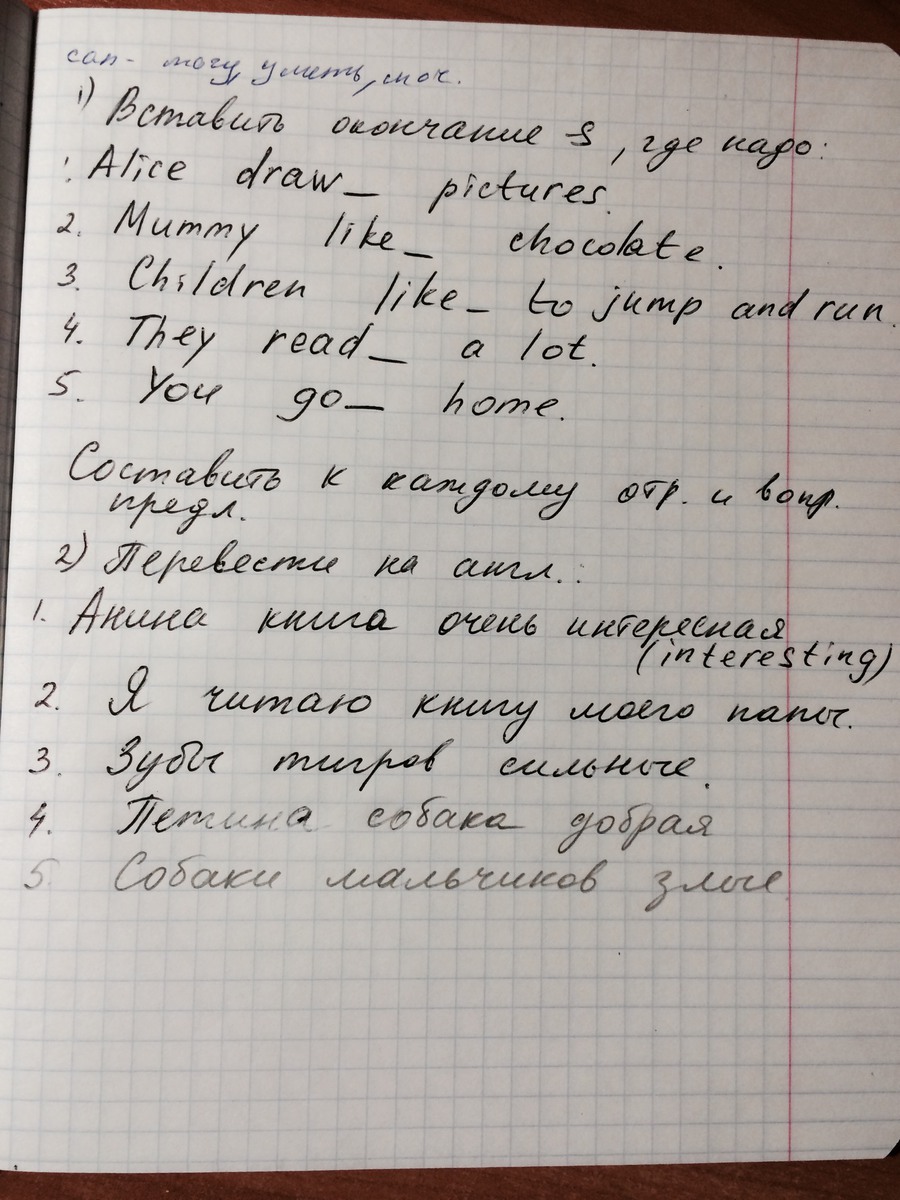 can - могу, уметь, моч.
1) Вставить окончание -s, где надо:
. Alice draw_ pictures.
2. Mummy like_ chocolate.
3. Children like_ to jump and run.
4. They read_ a lot.
5. You go_ home.
Составить к каждому отр. и вопр.
предл.
2) Перевести на англ.:
1. Анина книга очень интересная
(interesting)
2. Я читаю книгу моего папы.
3. Зубы тигров сильные.
4. Петина собака добрая
5. Собаки мальчиков злые